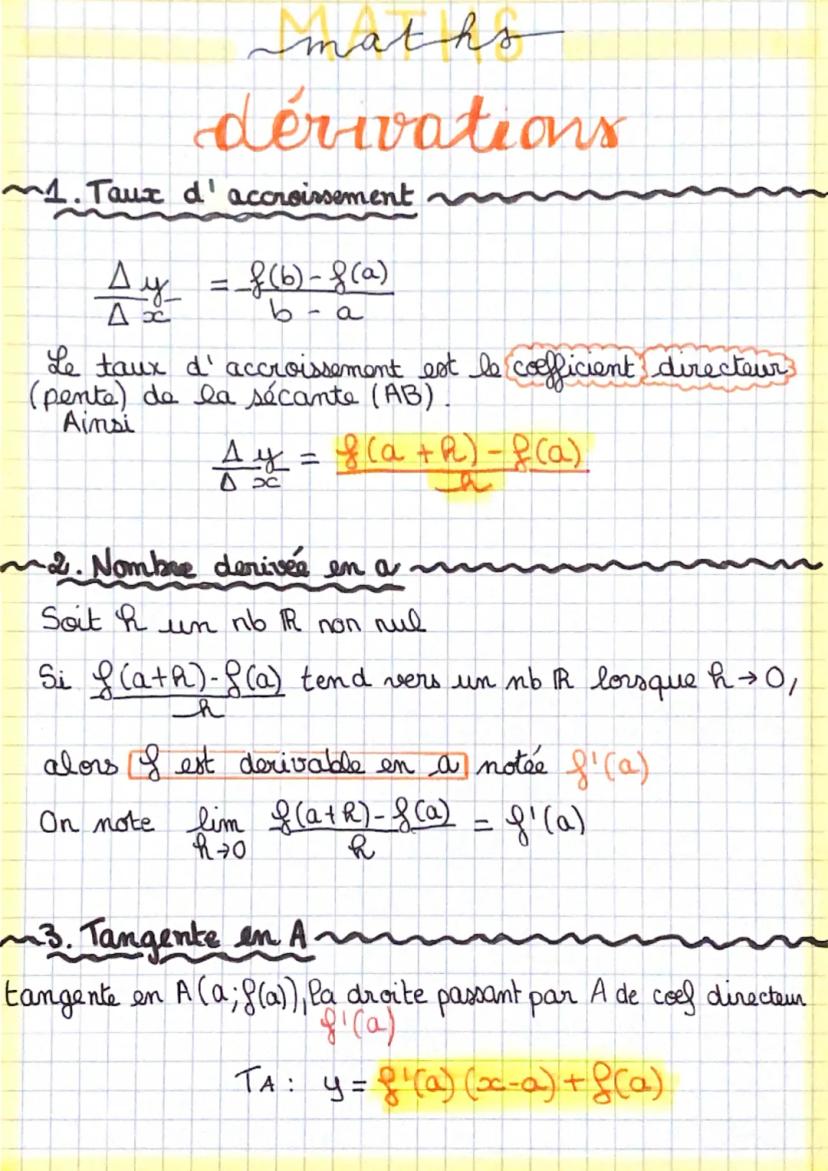 MATHS
maths
dérivations
1. Taux d'accroissement
Δy/Δx = f(b)-f(a)/b-a
Le taux d'accroissement est le coefficient directeur
(pente) de la sécante (AB).
Ainsi
Δy/Δx = f(a+h)-f(a)/h
2. Nombre derivée en a
Soit h un nb ℝ non nul
Si f(a+h)-f(a)/h tend vers un nb ℝ lorsque h→0,
alors f est derivable en a notée f'(a)
On note lim h→0 f(a+h)-f(a)/h = f'(a)
3. Tangente en A
tangente en A(a;f(a)), la droite passant par A de coef directeur
f'(a)
TA : y = f'(a)(x-a)+f(a)